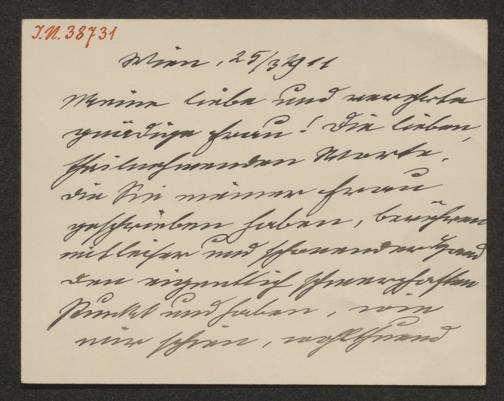 I.N. 38731
Wien, 25/3 1911
Meine liebe und verehrte
gnädige Frau! Die lieben,
theilnehmenden Worte,
die Sie meiner Frau
geschrieben haben, berühren
mit leiser und schonender Hand
den eigentlich schmerzhaften
Punkt und haben, wie
mir schien, wohlthuend